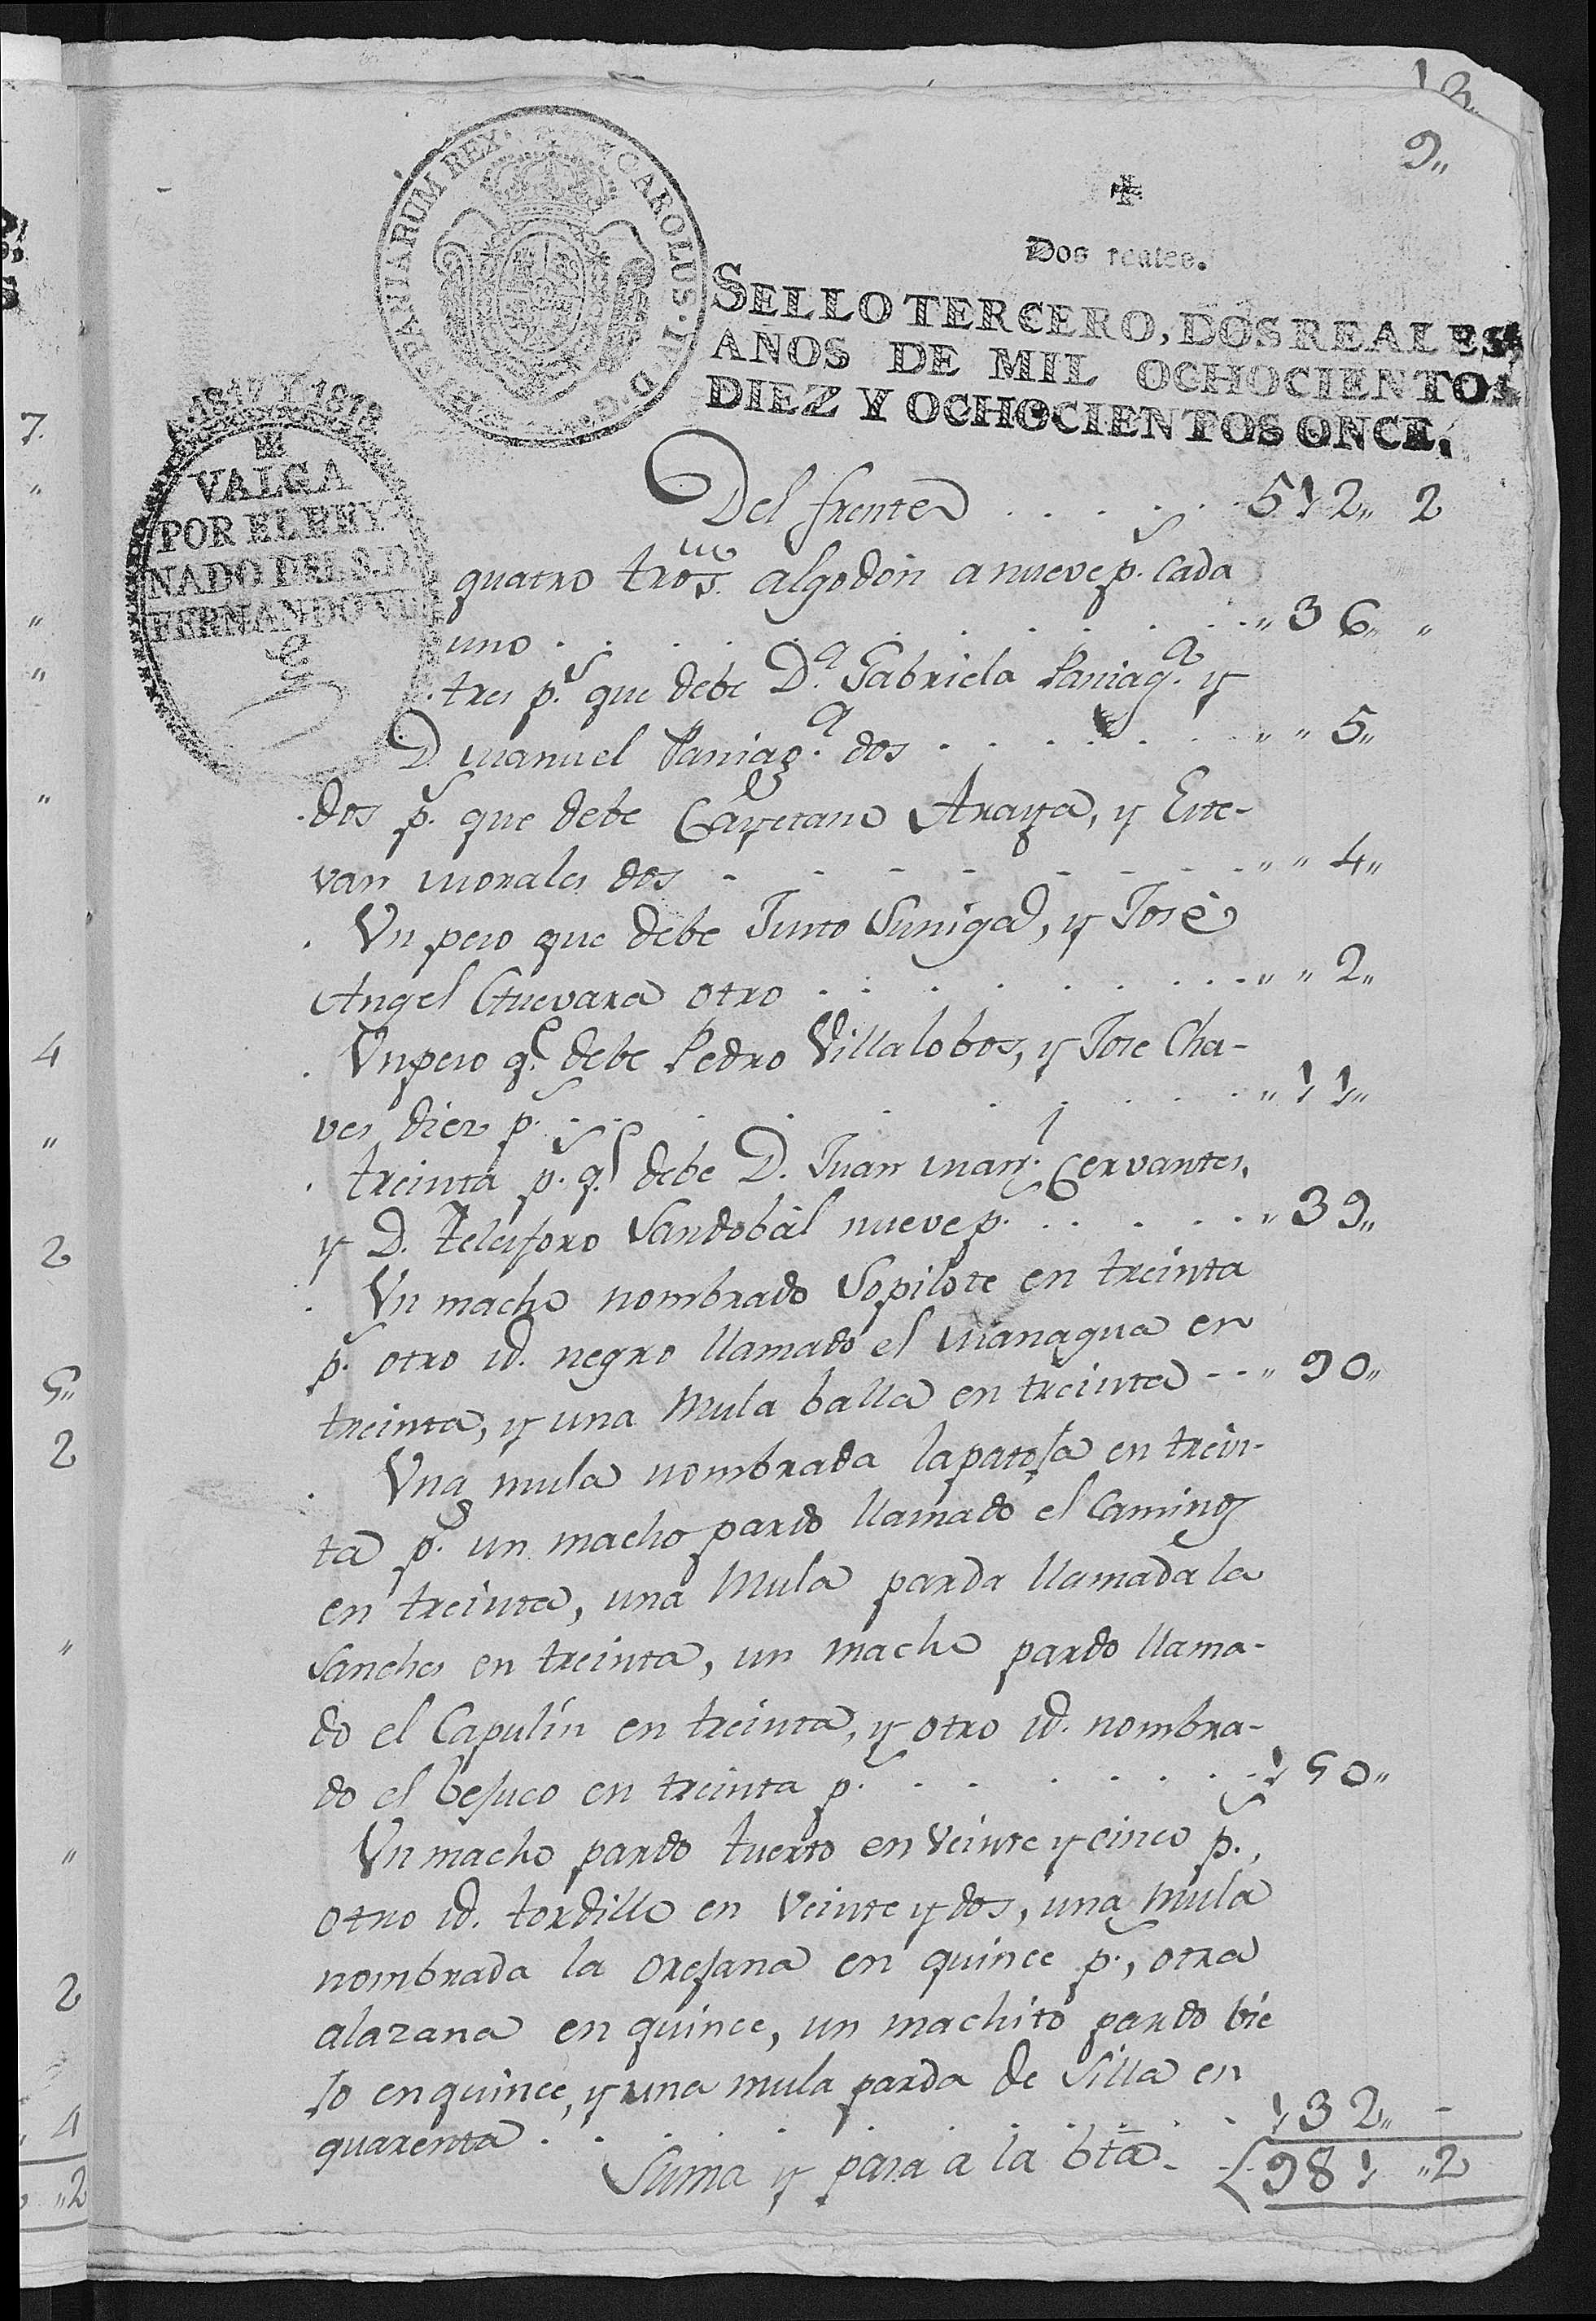 13
9,,
CAROLUS · IV · D · G · HISPANIARUM REX ·
Dos reales.
SELLO TERCERO, DOS REALES,
AÑOS DE MIL OCHOCIENTOS
DIEZ Y OCHOCIENTOS ONCE.
1817 Y 1818
VALGA
POR EL REY
NADO DEL S. D.
FERNANDO VII
Del frente . . . . . 512,, 2
quatro tros. algodon a nueve p.s cada
uno . . . . . . . . ,, 36,, ,,
. tres p.s que debe D.a Gabriela Paniag.a y
D Manuel Paniag.a dos . . . . . . . ,, ,, 5,,
. dos p.s que debe Cayetano Araya, y Este-
van Morales dos - - - - - - - - ,, ,, 4,,
. Un peso que debe Justo Suniga, y José
Angel Guevara otro . . . . . . . . ,, ,, 2,,
. Un peso q.e debe Pedro Villalobos, y Jose Cha-
ves diez p.s . . . . . . . . ,, 11,,
. treinta p.s q.e debe D. Juan Man.l Cervantes,
y D. Telesforo Sandobàl nueve p.s . . . . . ,, 39,,
. Un macho nombrado Sopilote en treinta
p.s otro id. negro llamado el Managua en
treinta, y una Mula balla en treinta - - ,, 90,,
. Una mula nombrada la patosa en trein-
ta p.s un macho pardo llamado el Camino
en treinta, una Mula parda llamada la
Sanches en treinta, un macho pardo llama-
do el Capulín en treinta, y otro id. nombra-
do el besuco en treinta p.s . . . . . . . . 150,,
Un macho pardo tuerto en Veinte y cinco p.s,
otro id. tordillo en Veinte y dos, una Mula
nombrada la oresana en quince p.s, otra
alazana en quince, un machito pardo bie
jo en quince, y una mula parda de Silla en
quarenta . . . . . . . . 132,, -
Suma y pasa a la bta - - 981 ,, 2